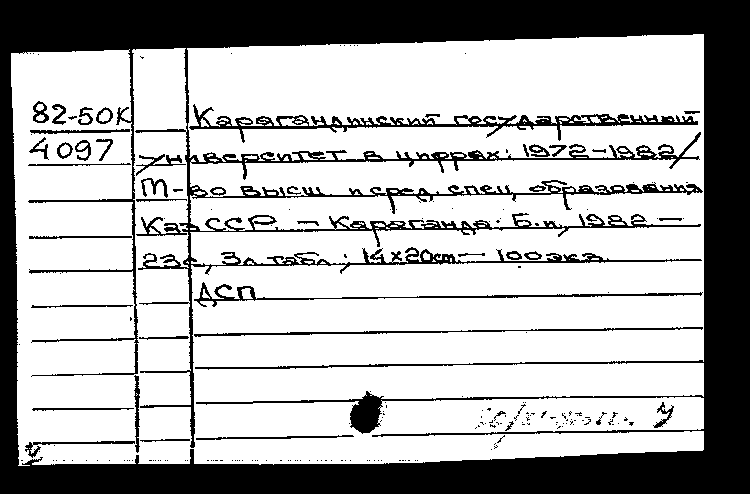 82-50К Карагандинский государственный
4097 университет в цифрах: 1972-1982/
М-во высш. и сред. спец. образования
КазССР. - Караганда: Б.и., 1982 -
23с., 3л. табл.; 14х20см - 100экз.
ДСП
У
у